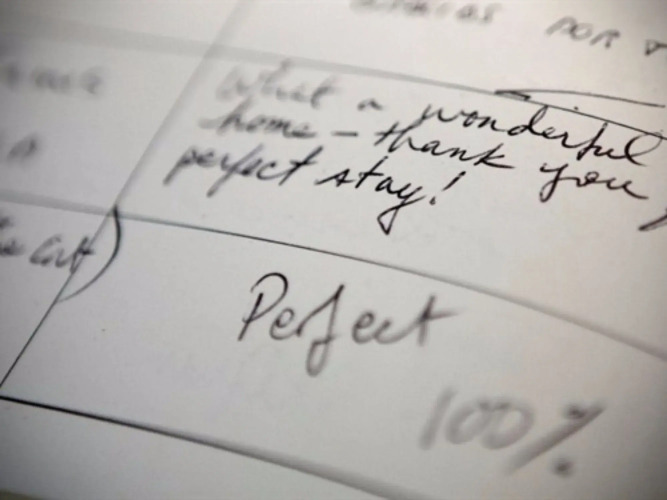 POR
What a wonderful
home - thank you,
perfect stay!
Perfect
100%